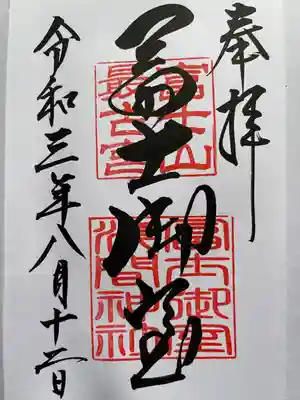 奉拝
富士山
最古宮
冨士御室
富士御室
浅間神社
令和三年八月十二日